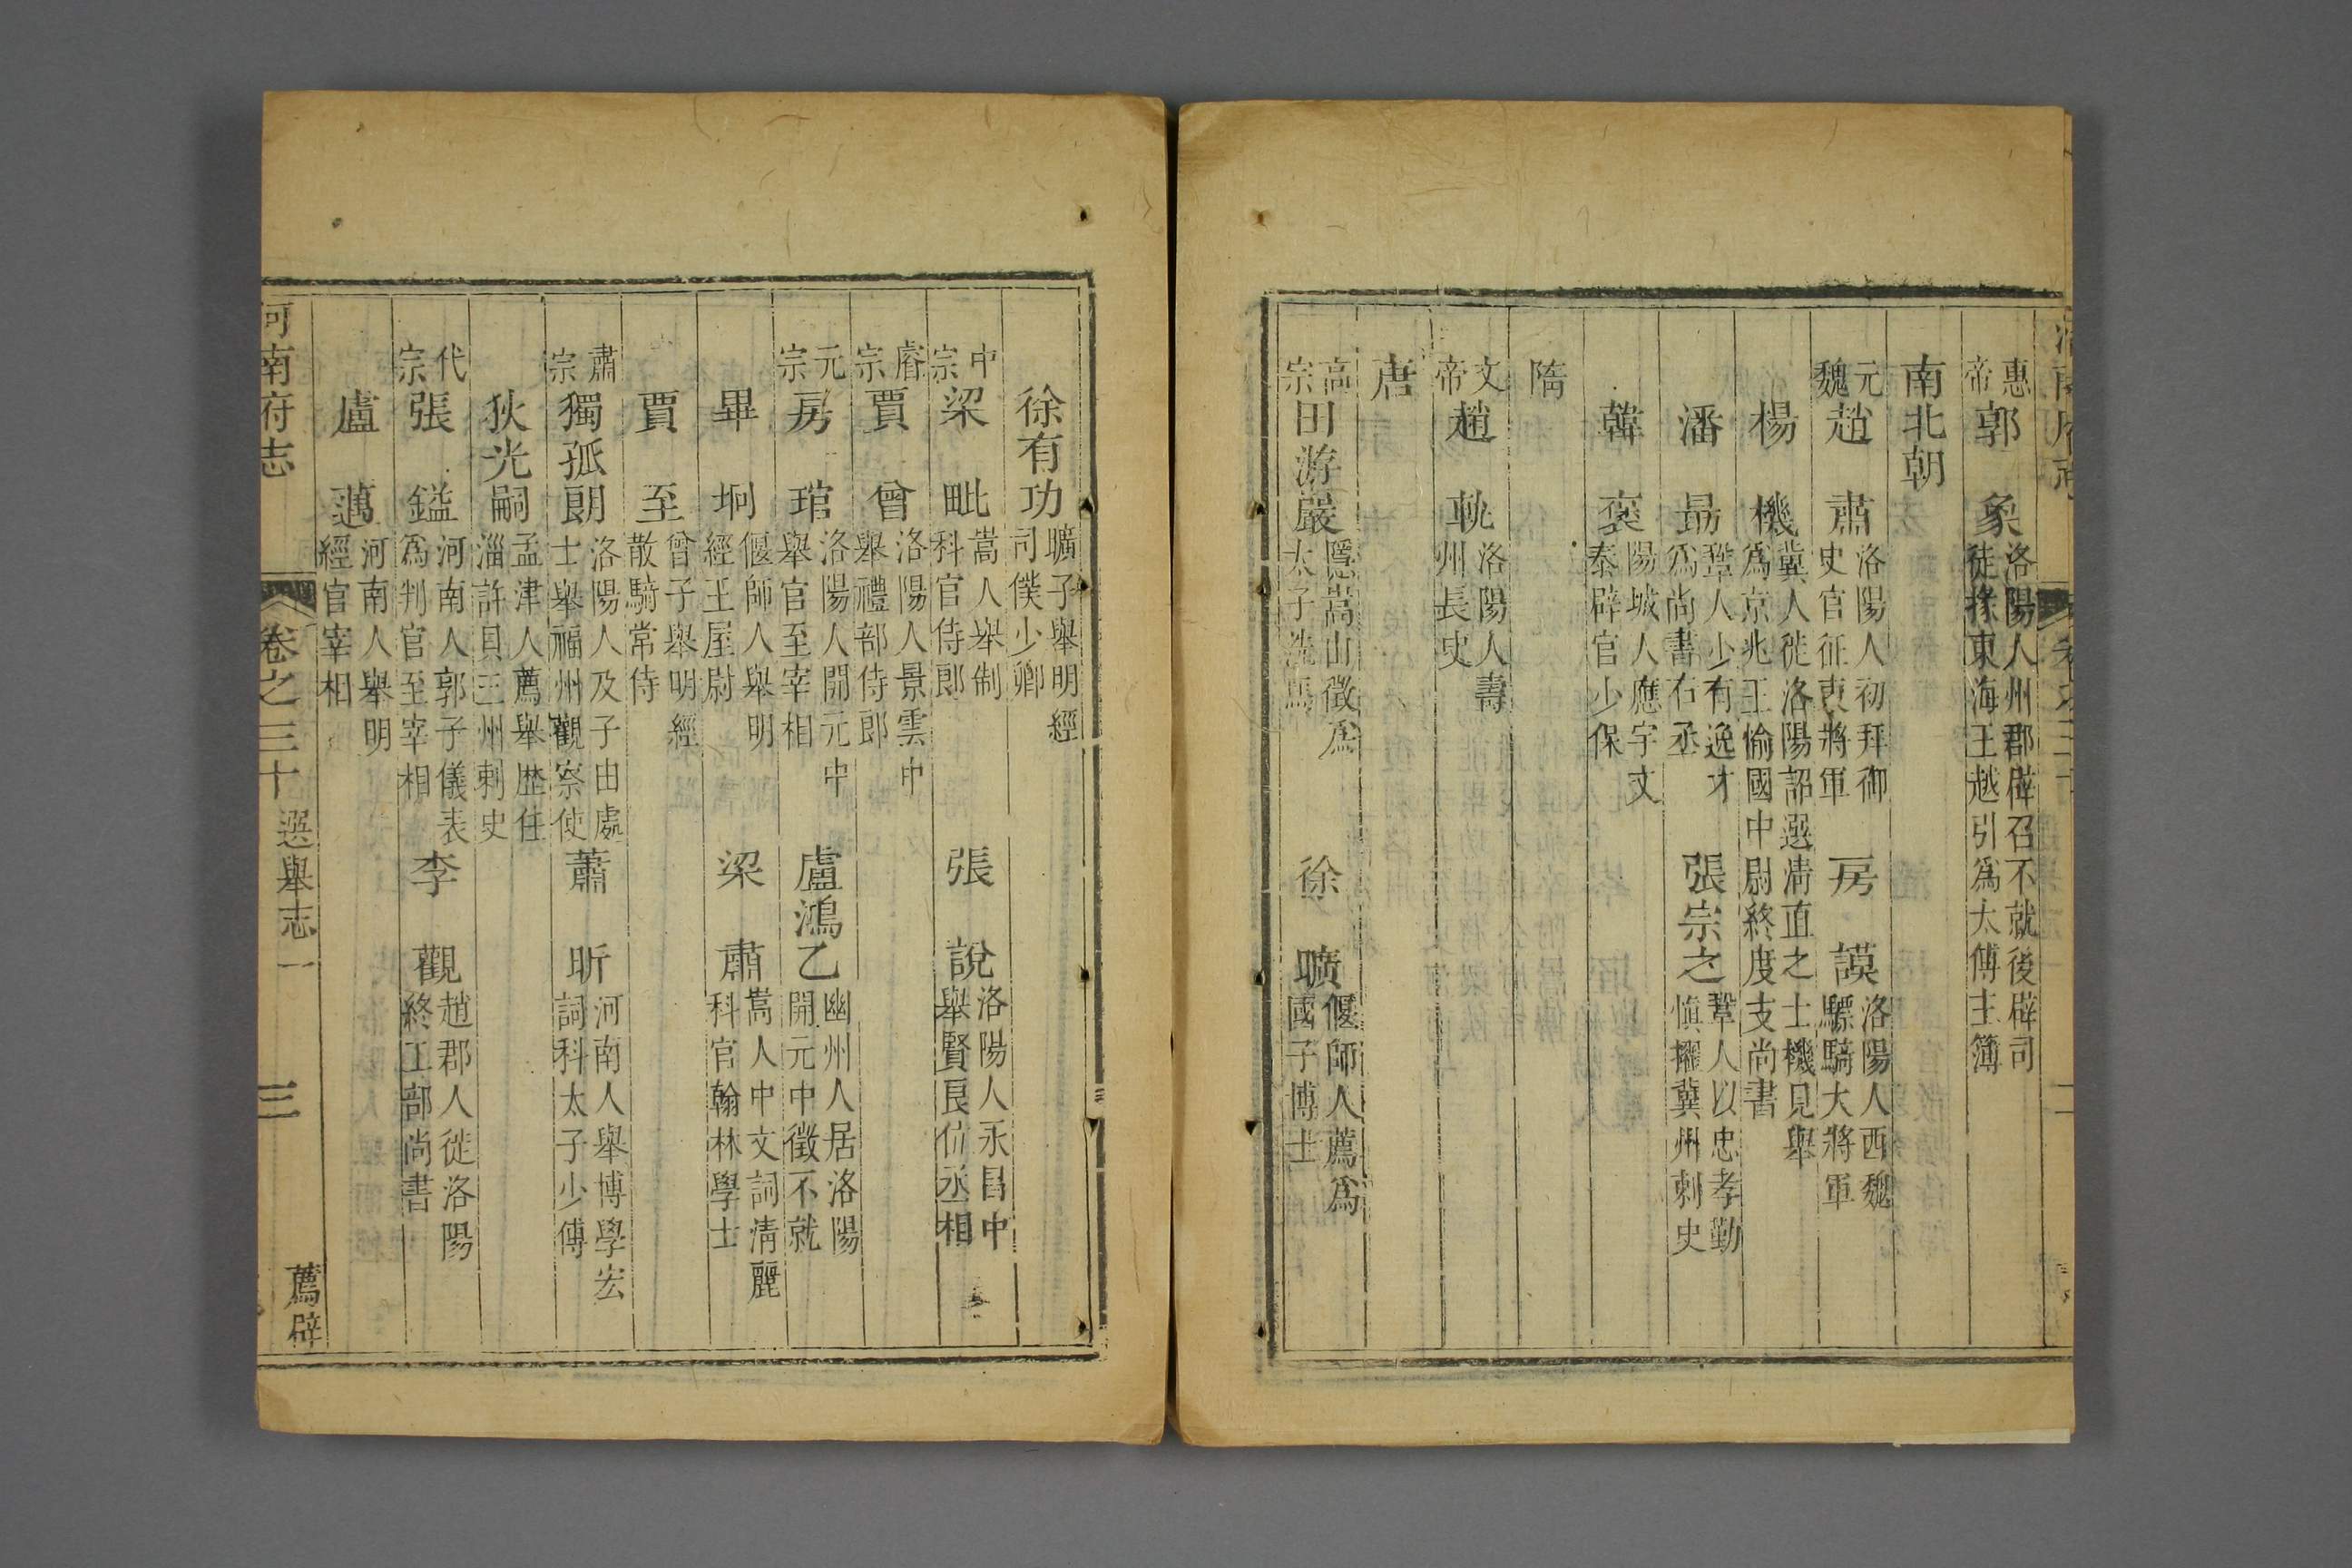 惠帝 郭象 洛陽人州郡辟召不就後辟司徒掾東海王越引爲太傅主簿
南北朝
元魏 趙肅 洛陽人初拜御史官征東將軍 房謨 洛陽人西魏驃騎大將軍
楊機 冀人徙洛陽詔選清直之士機見舉爲京兆王愉國中尉終度支尚書
潘朂 鞏人少有逸才爲尚書右丞 張宗之 鞏人以忠孝勤慎擢冀州刺史
韓褒 陽城人應宇文泰辟官少保
隋
文帝 趙軌 洛陽人壽州長史
唐
高宗 田游巖 隱嵩山徵爲太子洗馬 徐曠 偃師人薦爲國子博士
徐有功 曠子舉明經司僕少卿
中宗 梁毗 嵩人舉制科官侍郎 張說 洛陽人永昌中舉賢良位丞相
睿宗 賈曾 洛陽人景雲中舉禮部侍郎
元宗 房琯 洛陽人開元中舉官至宰相 盧鴻乙 幽州人居洛陽開元中徵不就
畢坰 偃師人舉明經王屋尉 梁肅 嵩人中文詞清麗科官翰林學士
賈至 曾子舉明經散騎常侍
肅宗 獨孤朗 洛陽人及子由處士舉福州觀察使 蕭昕 河南人舉博學宏詞科太子少傅
狄光嗣 孟津人薦舉歷任淄許貝三州刺史
代宗 張鎰 河南人郭子儀表爲判官至宰相 李觀 趙郡人徙洛陽終工部尚書
盧邁 河南人舉明經官宰相
河南府志 卷之三十 選舉志一 薦辟 三